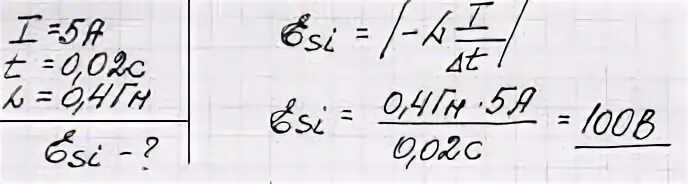 I = 5А
t = 0,02с
L = 0,4Гн
Ɛsi - ?
Ɛsi = |-L I/Δt|
Ɛsi = 0,4Гн · 5А / 0,02с = 100В